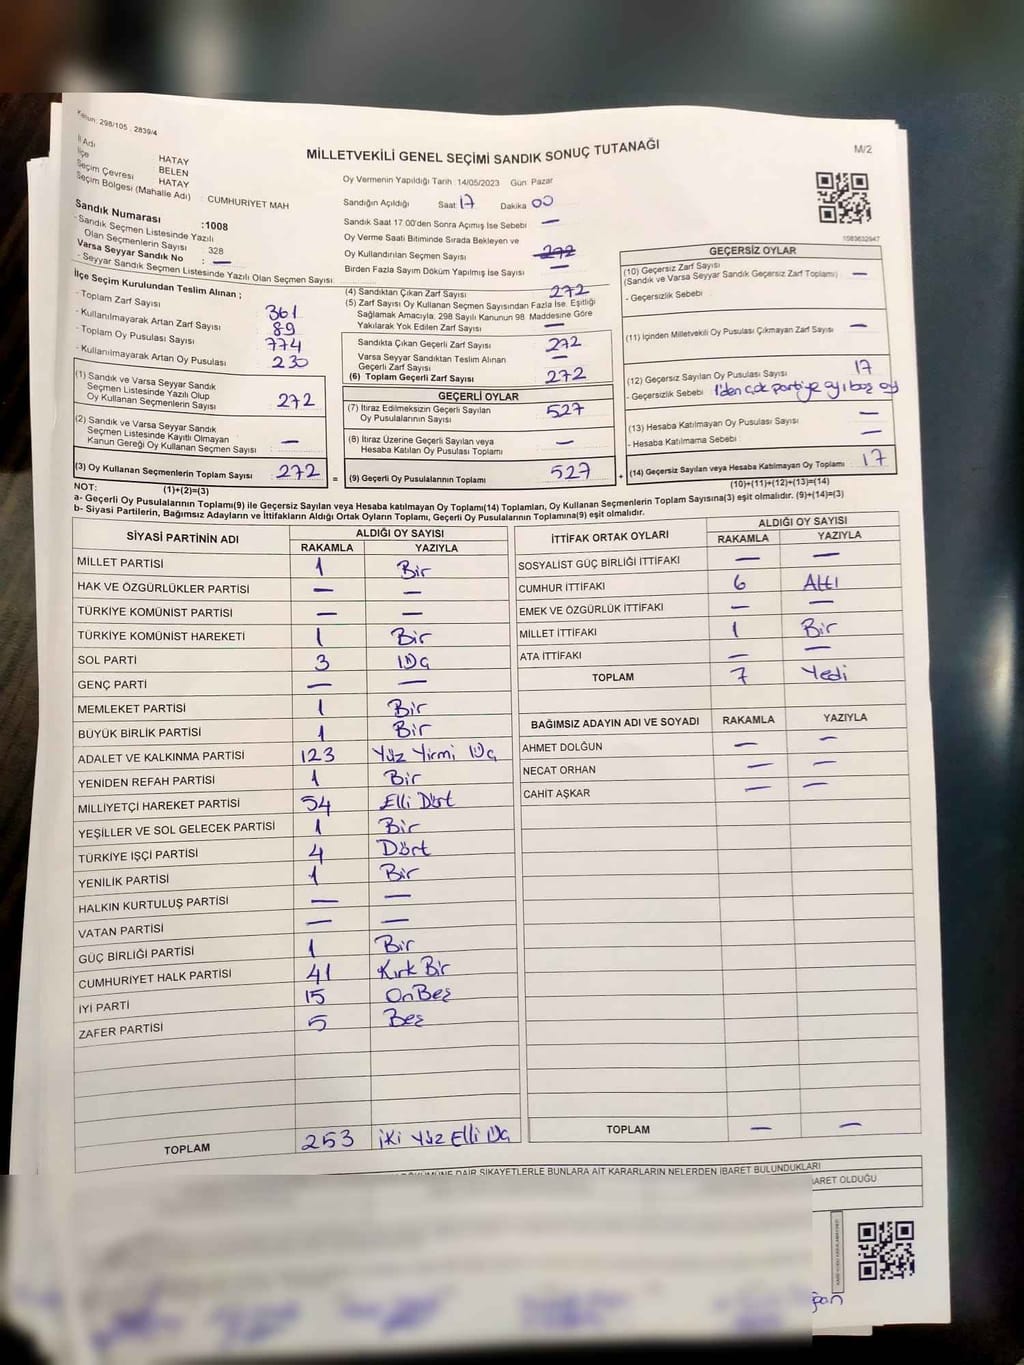 Kanun: 298/105 , 2839/4
MİLLETVEKİLİ GENEL SEÇİMİ SANDIK SONUÇ TUTANAĞI
M/2
İl Adı HATAY
İlçe BELEN
Seçim Çevresi HATAY
Seçim Bölgesi (Mahalle Adı) : CUMHURIYET MAH
Sandık Numarası :1008
- Sandık Seçmen Listesinde Yazılı
Olan Seçmenlerin Sayısı 328
Varsa Seyyar Sandık No : —
- Seyyar Sandık Seçmen Listesinde Yazılı Olan Seçmen Sayısı
İlçe Seçim Kurulundan Teslim Alınan ;
- Toplam Zarf Sayısı 361
- Kullanılmayarak Artan Zarf Sayısı 89
- Toplam Oy Pusulası Sayısı 774
- Kullanılmayarak Artan Oy Pusulası 230
(1) Sandık ve Varsa Seyyar Sandık
Seçmen Listesinde Yazılı Olup
Oy Kullanan Seçmenlerin Sayısı 272
(2) Sandık ve Varsa Seyyar Sandık
Seçmen Listesinde Kayıtlı Olmayan
Kanun Gereği Oy Kullanan Seçmen Sayısı —
(3) Oy Kullanan Seçmenlerin Toplam Sayısı 272
(1)+(2)=(3)
Oy Vermenin Yapıldığı Tarih :14/05/2023 Gün: Pazar
Sandığın Açıldığı Saat: 17 Dakika 00
Sandık Saat 17.00'den Sonra Açımış İse Sebebi —
Oy Verme Saati Bitiminde Sırada Bekleyen ve
Oy Kullandırılan Seçmen Sayısı 272
Birden Fazla Sayım Döküm Yapılmış İse Sayısı —
(4) Sandıktan Çıkan Zarf Sayısı 272
(5) Zarf Sayısı Oy Kullanan Seçmen Sayısından Fazla İse, Eşitliği
Sağlamak Amacıyla, 298 Sayılı Kanunun 98. Maddesine Göre
Yakılarak Yok Edilen Zarf Sayısı —
Sandıkta Çıkan Geçerli Zarf Sayısı 272
Varsa Seyyar Sandıktan Teslim Alınan
Geçerli Zarf Sayısı —
(6) Toplam Geçerli Zarf Sayısı 272
GEÇERLİ OYLAR
(7) İtiraz Edilmeksizin Geçerli Sayılan
Oy Pusulalarının Sayısı 527
(8) İtiraz Üzerine Geçerli Sayılan veya
Hesaba Katılan Oy Pusulası Toplamı —
= (9) Geçerli Oy Pusulalarının Toplamı 527
1583632947
GEÇERSİZ OYLAR
(10) Geçersiz Zarf Sayısı
(Sandık ve Varsa Seyyar Sandık Geçersiz Zarf Toplamı) —
- Geçersizlik Sebebi
(11) İçinden Milletvekili Oy Pusulası Çıkmayan Zarf Sayısı —
(12) Geçersiz Sayılan Oy Pusulası Sayısı 17
- Geçersizlik Sebebi 1'den çok partiye oy boş oy
(13) Hesaba Katılmayan Oy Pusulası Sayısı —
- Hesaba Katılmama Sebebi —
+ (14) Geçersiz Sayılan veya Hesaba Katılmayan Oy Toplamı 17
(10)+(11)+(12)+(13)=(14)
NOT:
a- Geçerli Oy Pusulalarının Toplamı(9) ile Geçersiz Sayılan veya Hesaba katılmayan Oy Toplamı(14) Toplamları, Oy Kullanan Seçmenlerin Toplam Sayısına(3) eşit olmalıdır. (9)+(14)=(3)
b- Siyasi Partilerin, Bağımsız Adayların ve İttifakların Aldığı Ortak Oyların Toplamı, Geçerli Oy Pusulalarının Toplamına(9) eşit olmalıdır.
SİYASİ PARTİNİN ADI ALDIĞI OY SAYISI
RAKAMLA YAZIYLA
MİLLET PARTİSİ 1 Bir
HAK VE ÖZGÜRLÜKLER PARTİSİ — —
TÜRKİYE KOMÜNİST PARTİSİ — —
TÜRKİYE KOMÜNİST HAREKETİ 1 Bir
SOL PARTİ 3 Üç
GENÇ PARTİ — —
MEMLEKET PARTİSİ 1 Bir
BÜYÜK BİRLİK PARTİSİ 1 Bir
ADALET VE KALKINMA PARTİSİ 123 Yüz Yirmi Üç
YENİDEN REFAH PARTİSİ 1 Bir
MİLLİYETÇİ HAREKET PARTİSİ 54 Elli Dört
YEŞİLLER VE SOL GELECEK PARTİSİ 1 Bir
TÜRKİYE İŞÇİ PARTİSİ 4 Dört
YENİLİK PARTİSİ 1 Bir
HALKIN KURTULUŞ PARTİSİ — —
VATAN PARTİSİ — —
GÜÇ BİRLİĞİ PARTİSİ 1 Bir
CUMHURİYET HALK PARTİSİ 41 Kırk Bir
İYİ PARTİ 15 OnBeş
ZAFER PARTİSİ 5 Beş
TOPLAM 253 İki Yüz Elli Üç
İTTİFAK ORTAK OYLARI ALDIĞI OY SAYISI
RAKAMLA YAZIYLA
SOSYALİST GÜÇ BİRLİĞİ İTTİFAKI — —
CUMHUR İTTİFAKI 6 Altı
EMEK VE ÖZGÜRLÜK İTTİFAKI — —
MİLLET İTTİFAKI 1 Bir
ATA İTTİFAKI — —
TOPLAM 7 Yedi
BAĞIMSIZ ADAYIN ADI VE SOYADI RAKAMLA YAZIYLA
AHMET DOLĞUN — —
NECAT ORHAN — —
CAHİT AŞKAR — —
TOPLAM — —
DÖKÜMÜNE DAİR ŞİKAYETLERLE BUNLARA AİT KARARLARIN NELERDEN İBARET BULUNDUKLARI
BARET OLDUĞU